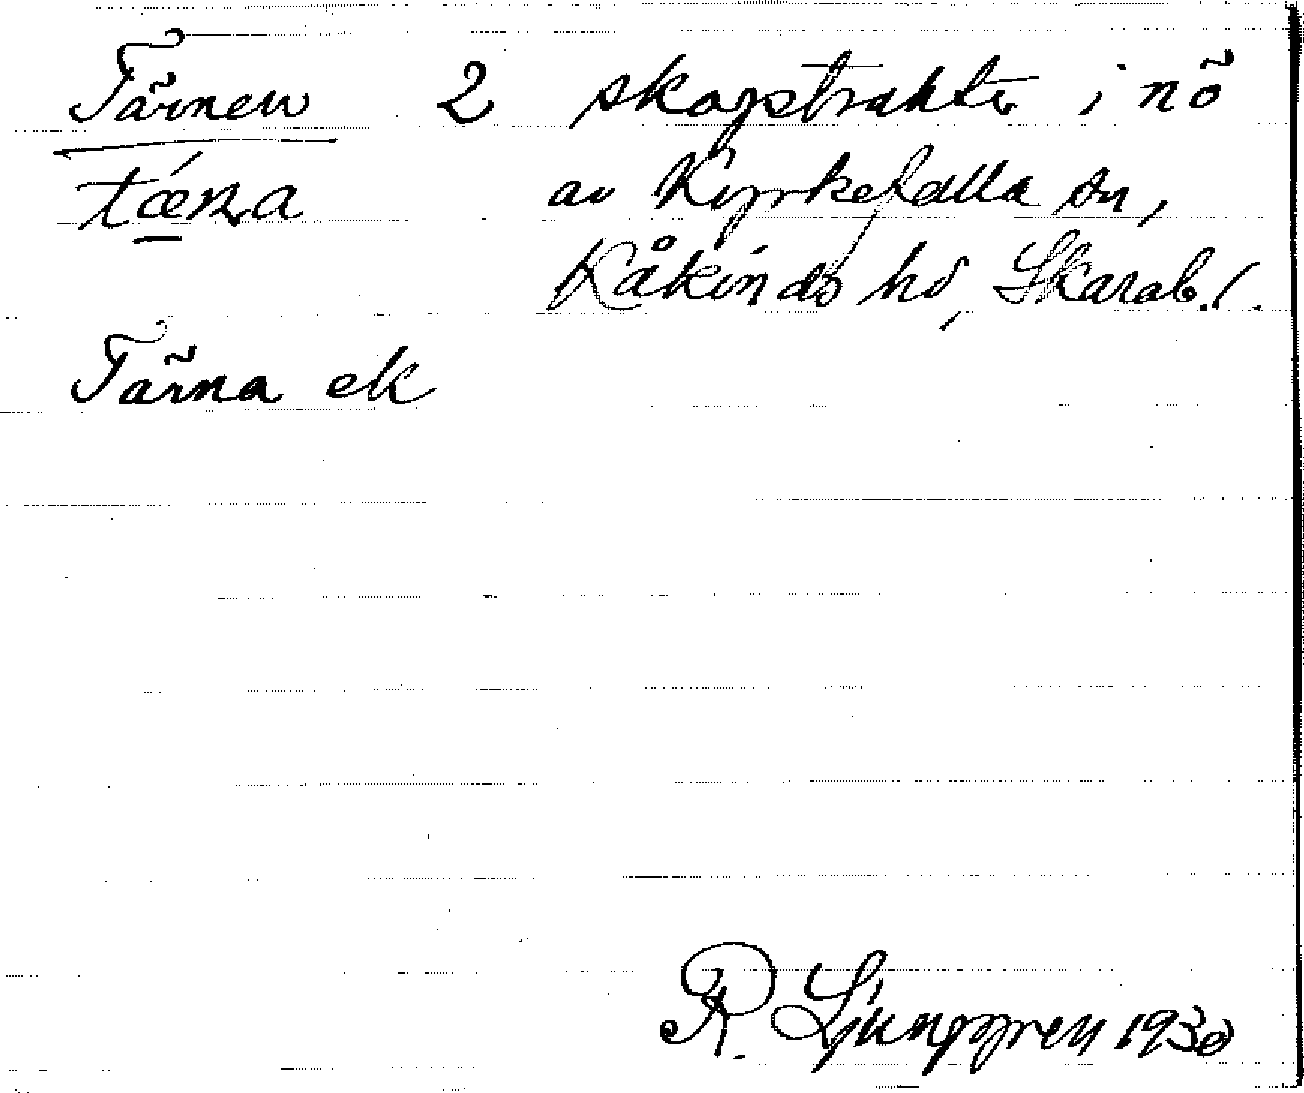 Tärnen 2 skogstrakter i nö
tǽrna av Kyrkefalla sn,
Kåkinds hd, Skarab. l.
Tärna ek
R. Ljunggren 1930